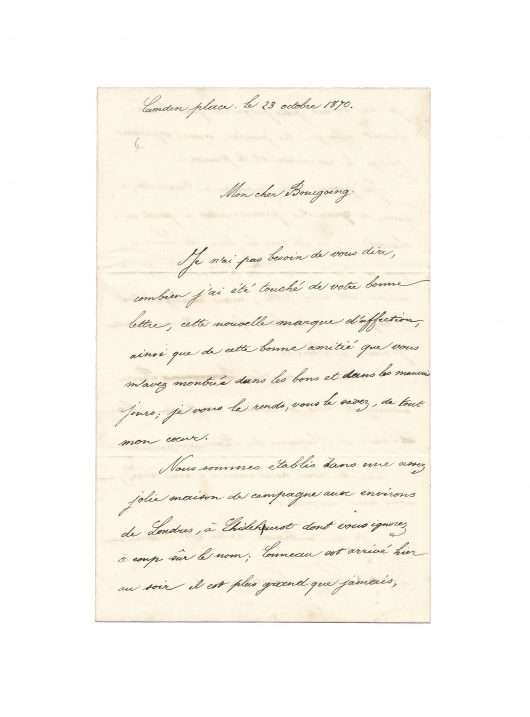 Camden place. le 23 octobre 1870.
Mon cher Bourgoing.
Je n'ai pas besoin de vous dire,
combien j'ai été touché de votre bonne
lettre, cette nouvelle marque d'affection,
ainsi que de cette bonne amitié que vous
m'avez montrée dans les bons et dans les mauvais
jours; je vous le rends, vous le savez, de tout
mon cœur.
Nous sommes établis dans une assez
jolie maison de campagne aux environs
de Londres, à dont vous ignorez
à coup sûr le nom; Conneau est arrivé hier
au soir il est plus grand que jamais,